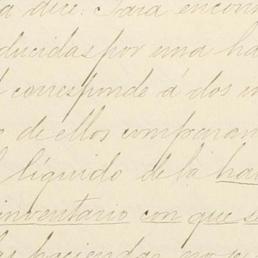 a dice: Para encon
ducidas por una ha
corresponde á dos in
o de ellos comparan
l líquido de la ha
inventario con que s
las haciendas